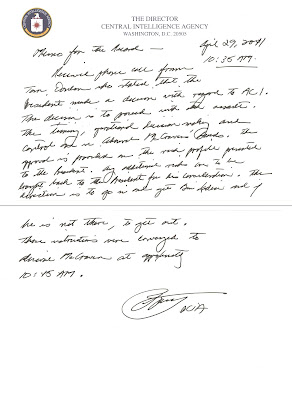 THE DIRECTOR
CENTRAL INTELLIGENCE AGENCY
WASHINGTON, D.C. 20505
Memo for the Record — Apr 29, 2011
10:35 AM.
Received phone call from
Tom Donilon who stated that the
President made a decision with regard to AC1
The decision is to proceed with the assault.
The timing, operational decision making and
control are in Admiral McRaven's hands. The
approval is provided on the risk profile presented
to the President. Any additional risks are to be
brought back to the President for his consideration. The
direction is to go in and get Bin Laden and if
he is not there, to get out.
Those instructions were conveyed to
Admiral McRaven at approximately
10:45 AM.
DCIA